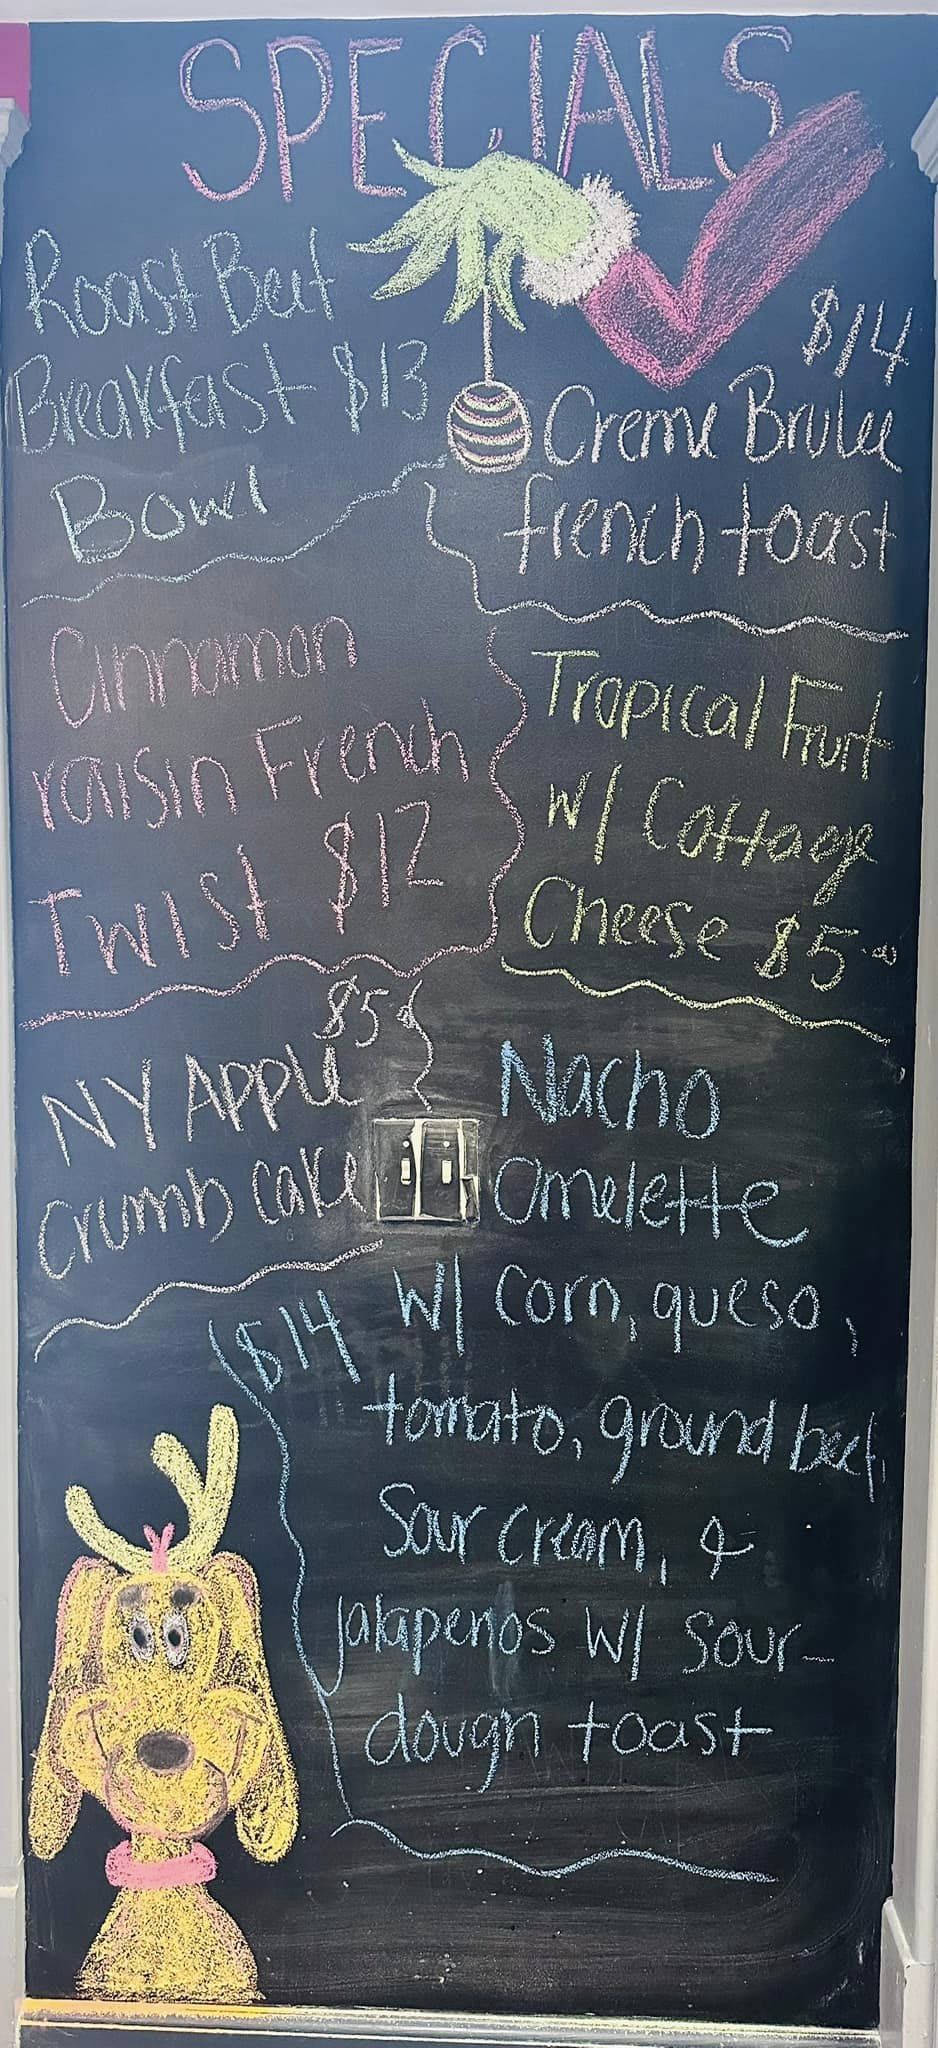 SPECIALS
Roast Beef
Breakfast $13
Bowl
$14
Creme Brulee
french toast
Cinnamon
raisin French
Twist $12
Tropical Fruit
w/ Cottage
Cheese $5.00
$5
NY Apple
crumb cake
Nacho
Omelette
$14 w/ corn, queso,
tomato, ground beef,
Sour cream, &
jalapenos w/ sour-
dough toast